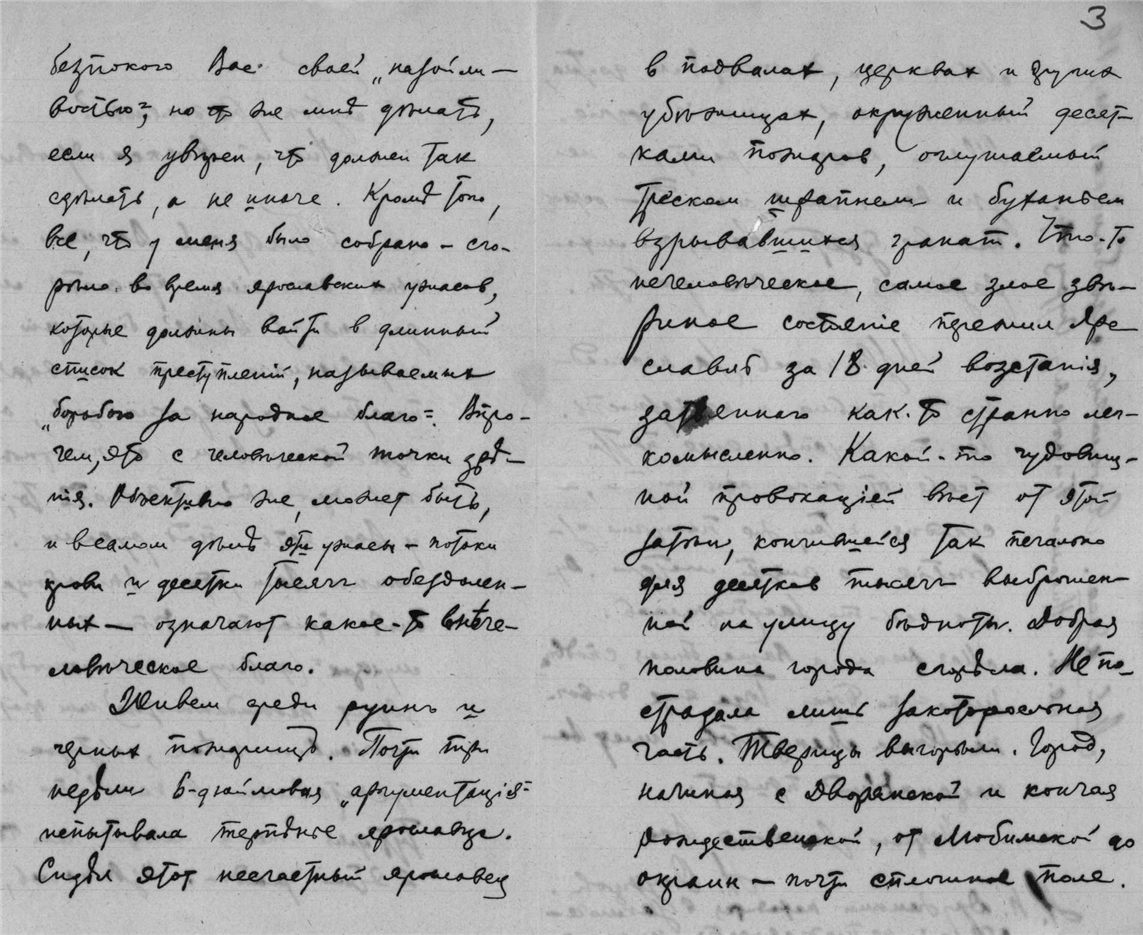 безпокою Вас своей „назойли-
востью“, но что же мнѣ дѣлать,
если я увѣрен, что должен так
сдѣлать, а не иначе. Кромѣ того,
все, что у меня было собрано – сго-
рѣло во время ярославских ужасов,
которые должны войти в длинный
список преступленій, называемых
„борьбою за народное благо“. Впро-
чем, это с человѣческой точки зрѣ-
нія. Объективно же, может быть,
и в самом дѣлѣ эти ужасы – потоки
крови и десятки тысяч обездолен-
ных – означают какое-то внѣче-
ловѣческое благо.
Живем среди руинъ и
черных пожарищъ. Почти три
недѣли 6-дюймовая „аргументація“
испытывала терпѣніе ярославца.
Сидѣл этот несчастный ярославец
3
в подвалах, церквах и других
убѣжищах, окруженный десят-
ками пожаров, оглушаемый
треском шрапнели и буханьем
взрывавшихся гранат. Что-то
нечеловѣческое, самое злое звѣ-
риное состояніе пережил Яро
славль за 18 дней возстанія,
затѣянного как-то странно лег-
комысленно. Какой-то чудовищ-
ной провокаціей вѣет от этой
затѣи, кончившейся так печально
для десятков тысяч выброшен-
ной на улицу бѣдноты. Добрая
половина города сгорѣла. Не по-
страдала лишь закоторосльная
часть. Тверицы выгорѣли. Город,
начиная с Дворянской и кончая
Рождественской, от Любимской до
окраин – почти сплошное поле.